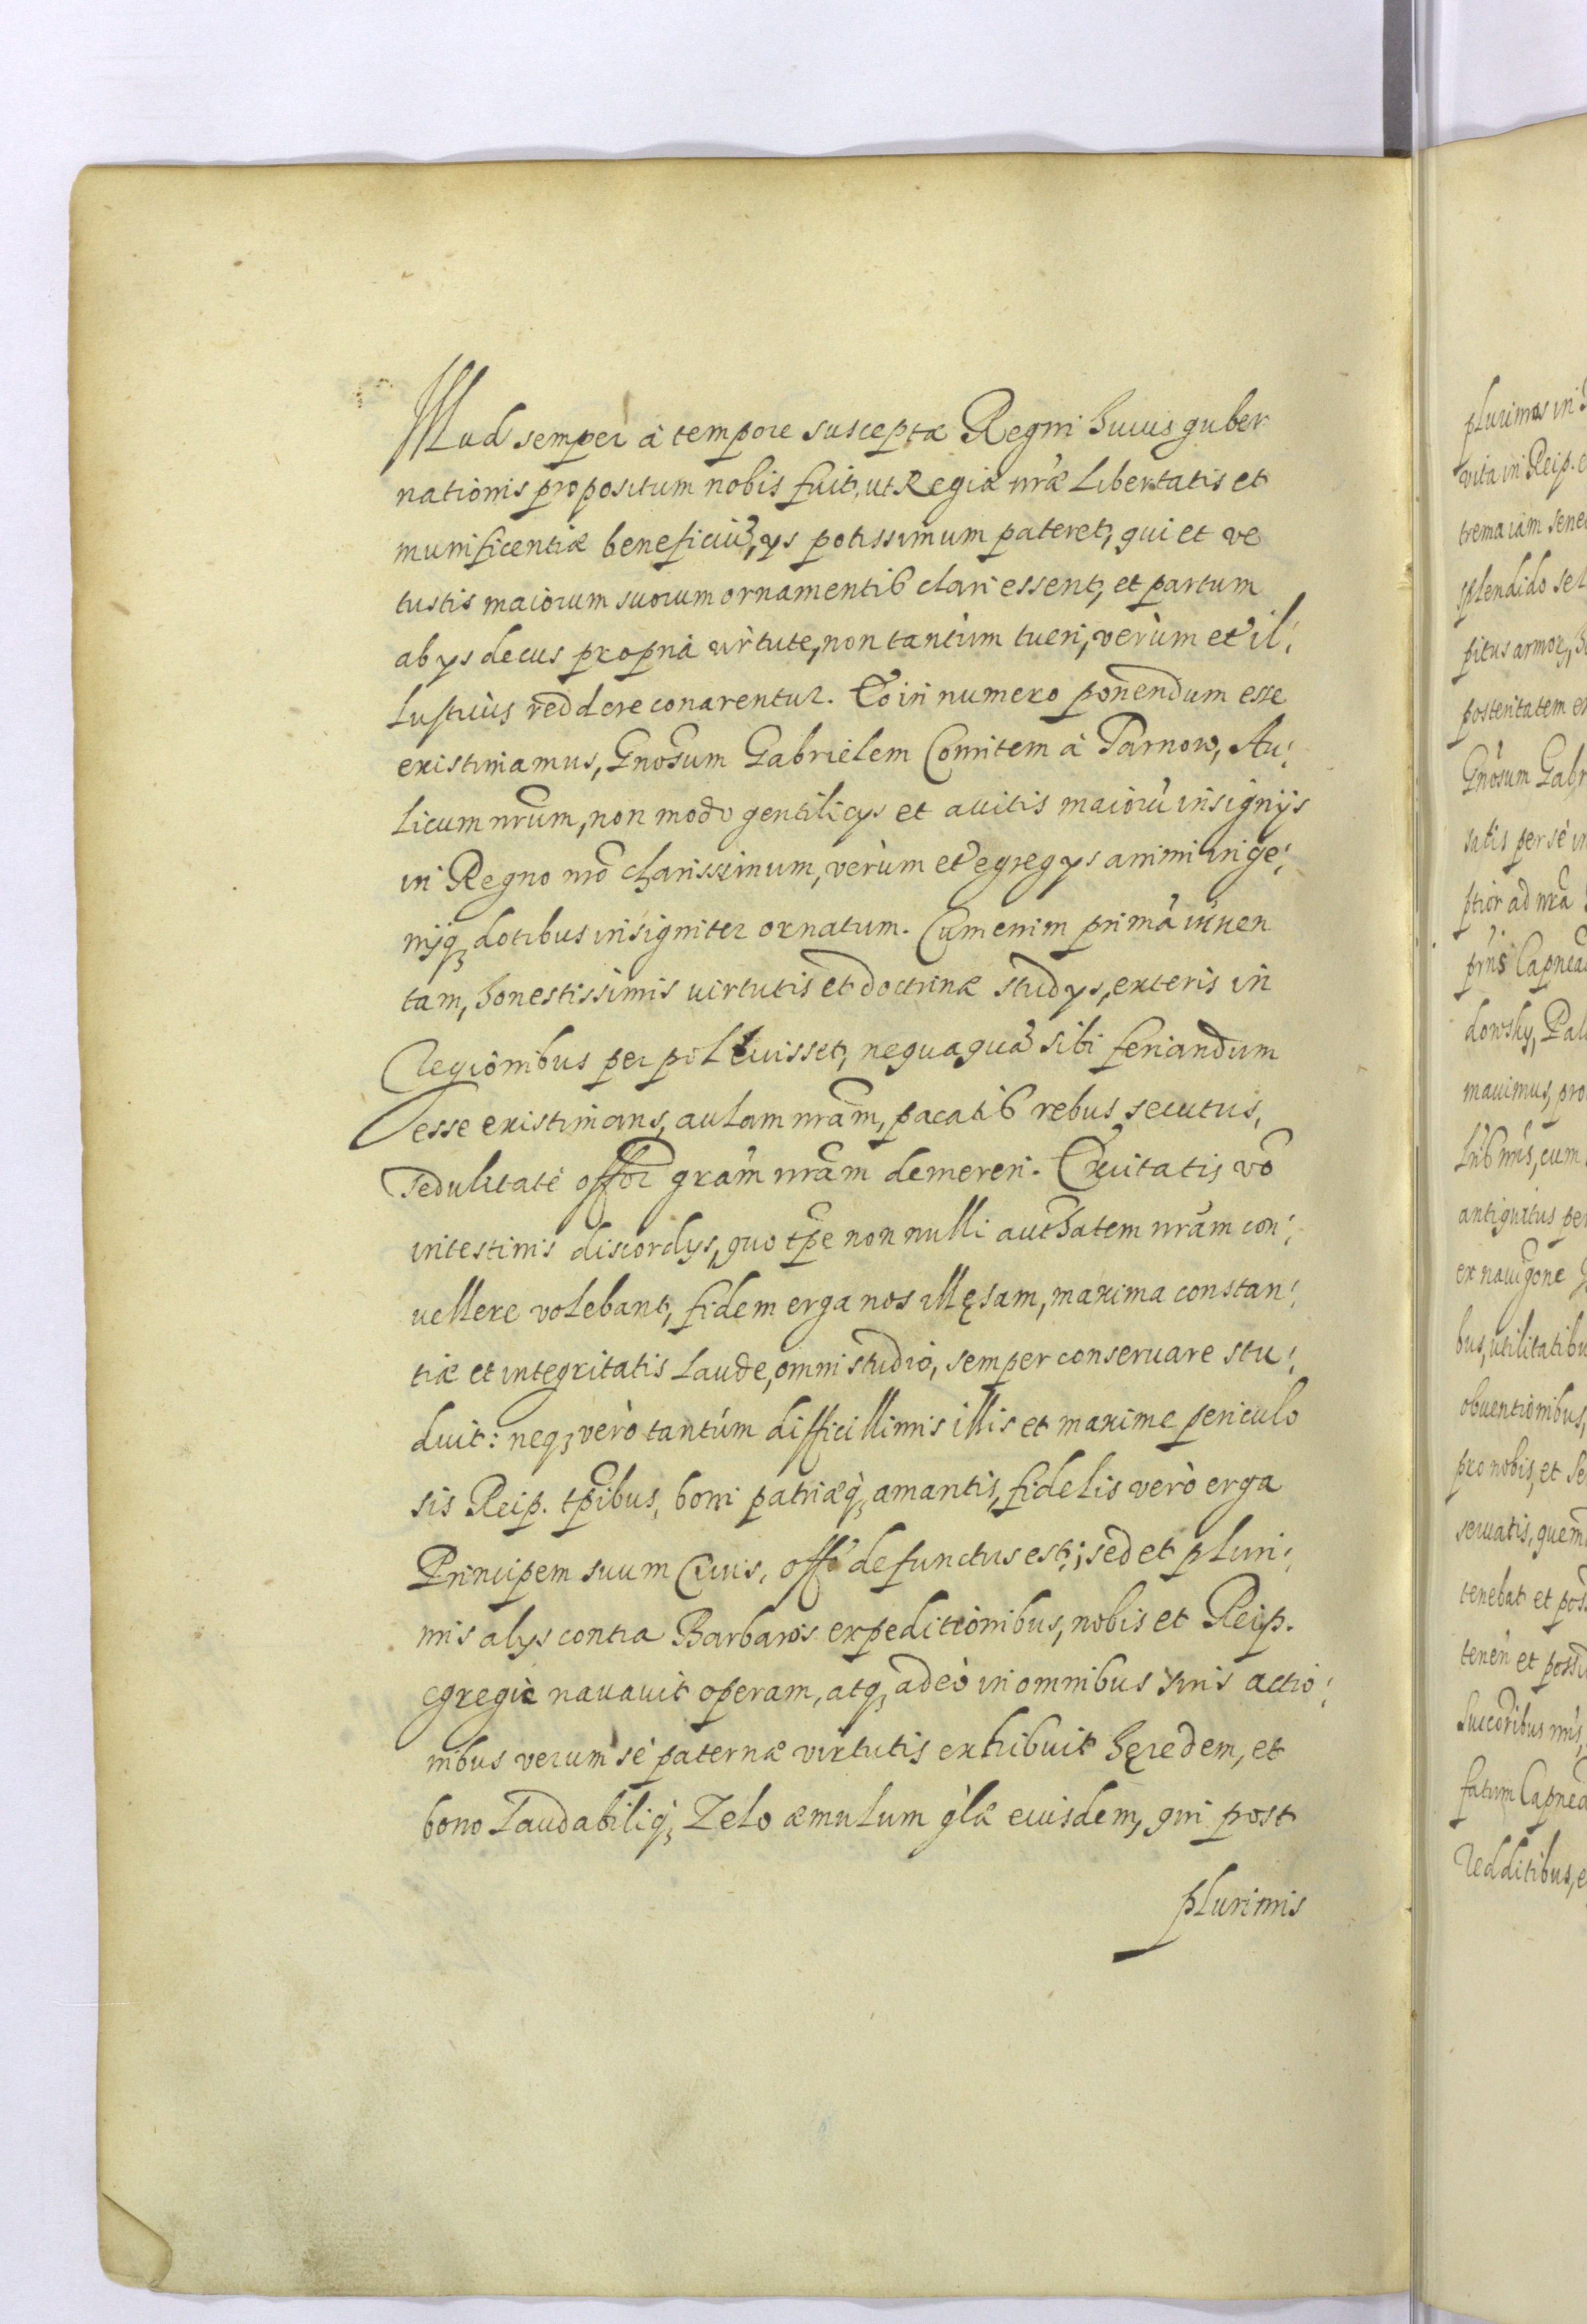 Illud semper à tempore susceptæ Regni huius guber
nationis propositum nobis fuit, ut Regiæ nræ Libertatis et
munificentiæ beneficiũ, ys potissimum pateret, qui et ve
tustis maiorum suorum ornamentib clari essent, et partum
ab ys decus propria virtute, non tantùm tueri, verùm et il:
Lustriùs reddere conarentur. Eo in numero ponendum esse
existimamus, Gnosum Gabrielem Comitem à Tarnow, Au:
Licum nrum, non modo gentilicys et avitis maiorũ insignijs
in Regno nro charissimum, verùm et egregys animi inge:
nijq; dotibus insigniter ornatum. Cum enim primã iuuen
tam, honestissimis virtutis et doctrinæ studys, exteris in
Regionibus per poluisset, nequaquã sibi feriandum
esse existimans, aulam nram, pacatib rebus secutus,
sedulitate offor gram nram demereri. Exitatis vo
intestinis discordys, quo tpe non nulli authatem nram con:
uellere volebant, fidem erga nos illęsam, maxima constan:
tiæ et integritatis Laude, omni studio, semper conseruare stu:
duit: neq; verò tantùm difficillimis illis et maxime periculo
sis Reip. tpibus, boni patriæq; amantis, fidelis verò erga
Principem suum Ciuis, offo defunctus est; sed et pluri:
mis alys contra Barbaros expeditionibus, nobis et Reip.
egregiè nauauit operam, atq; adeò in omnibus suis actio:
nibus verum sè paternæ virtutis exhibuit hęredem, et
bono Laudabiliq; Zelo æmulum glæ euisdem, qui post
plurimis
plurimos in
vita in Reip.
trema iam sene
splendido se
pitus armor,
posteritatem
Gnosum Gabr
satis per sè in
ptior ad nra
prns Capnea
dowsky, Pal
mauimus, pro
Lrib nris, cum
antiquitus per
ex nauigone
bus, utilitatibu
obuentionibus,
pro nobis, et Se
seruatis, quem
tenebat et pos
tenen et possi
Succoribus nris,
fatum Capnea
Redditibus, e